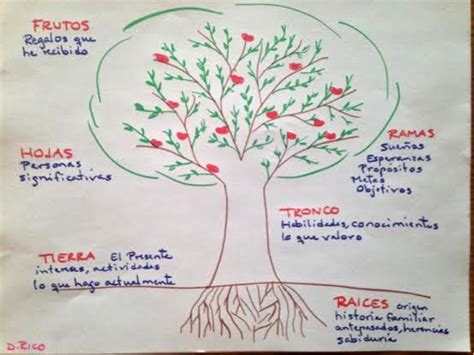 FRUTOS
Regalos que
he recibido
HOJAS
Personas
significativas
RAMAS
Sueños
Esperanzas
Propósitos
Metas
Objetivos
TRONCO
Habilidades, conocimientos
lo que valoro
TIERRA El Presente
intereses, actividades
lo que hago actualmente
RAICES origen
historia familiar
antepasados, herencias
sabiduría
D. RICO